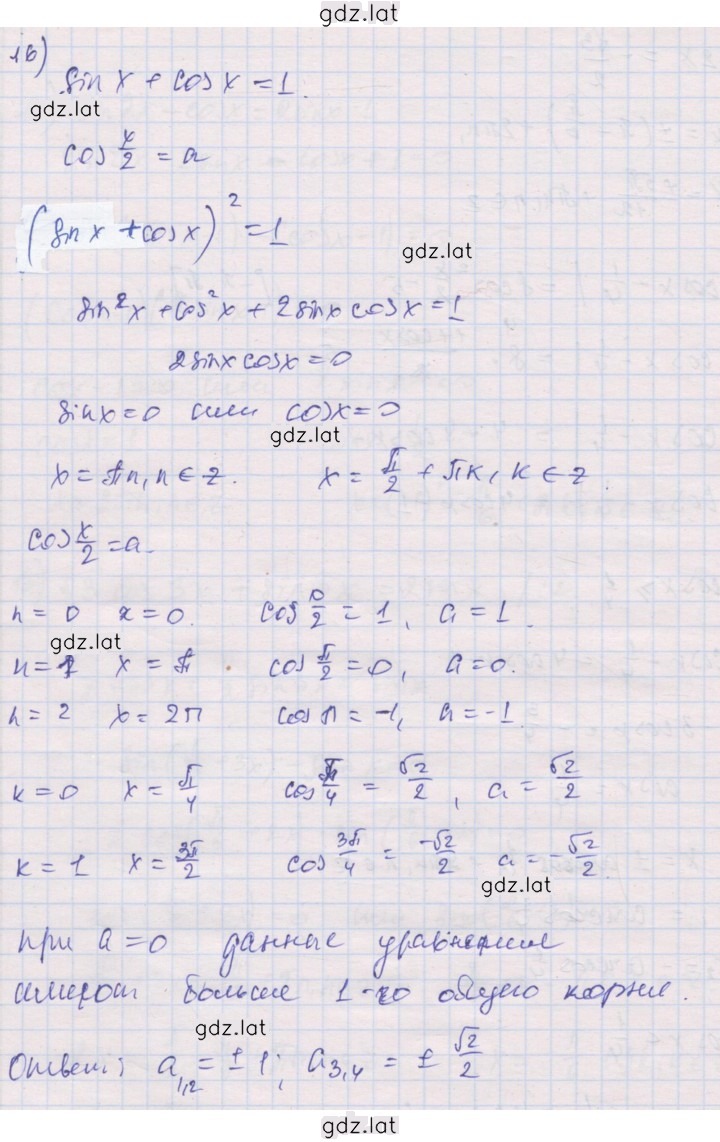 gdz.lat
1б)
sin x + cos x = 1.
gdz.lat
cos x/2 = a
(sin x + cos x)² = 1
gdz.lat
sin²x + cos²x + 2sinx cosx = 1
2sinx cosx = 0
sinx = 0 или cosx = 0
gdz.lat
x = πn, n ∈ z. x = π/2 + πk, k ∈ z
cos x/2 = a.
n = 0 x = 0. cos 0/2 = 1, a = 1.
gdz.lat
n = 1 x = π cos π/2 = 0, a = 0.
n = 2 x = 2π cos π = -1, a = -1.
k = 0 x = π/4 cos π/4 = √2/2, a = √2/2
k = 1 x = 3π/2 cos 3π/4 = -√2/2 a = -√2/2.
gdz.lat
при a = 0 данные уравнение
имеют больше 1-го общего корня.
gdz.lat
Ответ: a₁,₂ = ± 1; a₃,₄ = ± √2/2
gdz.lat